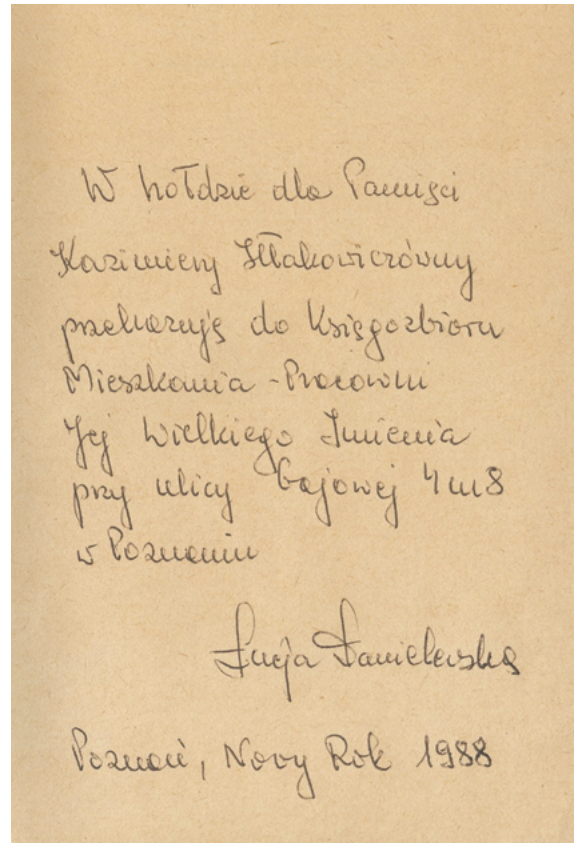 W hołdzie dla Pamięci
Kazimiery Iłłakowiczówny
przekazuję do Księgozbioru
Mieszkania - Pracowni
Jej Wielkiego Imienia
przy ulicy Gajowej 4 m 8
w Poznaniu
Łucja Danielewska
Poznań, Nowy Rok 1988